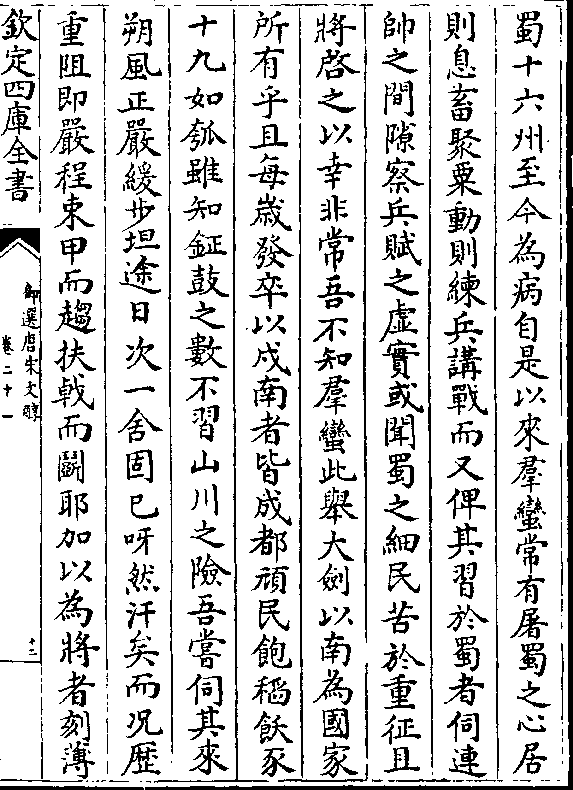 蜀十六州至今為病自是以來羣蠻常有屠蜀之心居
則息畜聚粟動則練兵講戰而又俾其習於蜀者伺連
帥之間隙察兵賦之虛實或聞蜀之細民苦於重征且
將啓之以幸非常吾不知羣蠻此舉大劍以南為國家
所有乎且每歲發卒以戍南者皆成都頑民飽稻飫豕
十九如瓠雖知鉦鼓之數不習山川之險吾嘗伺其來
朔風正嚴緩步坦途日次一舍固已呀然汗矣而况歷
重阻即嚴程束甲而趨扶戟而鬭耶加以為將者刻薄
欽定四庫全書
御選唐宋文醇
卷二十一
十二